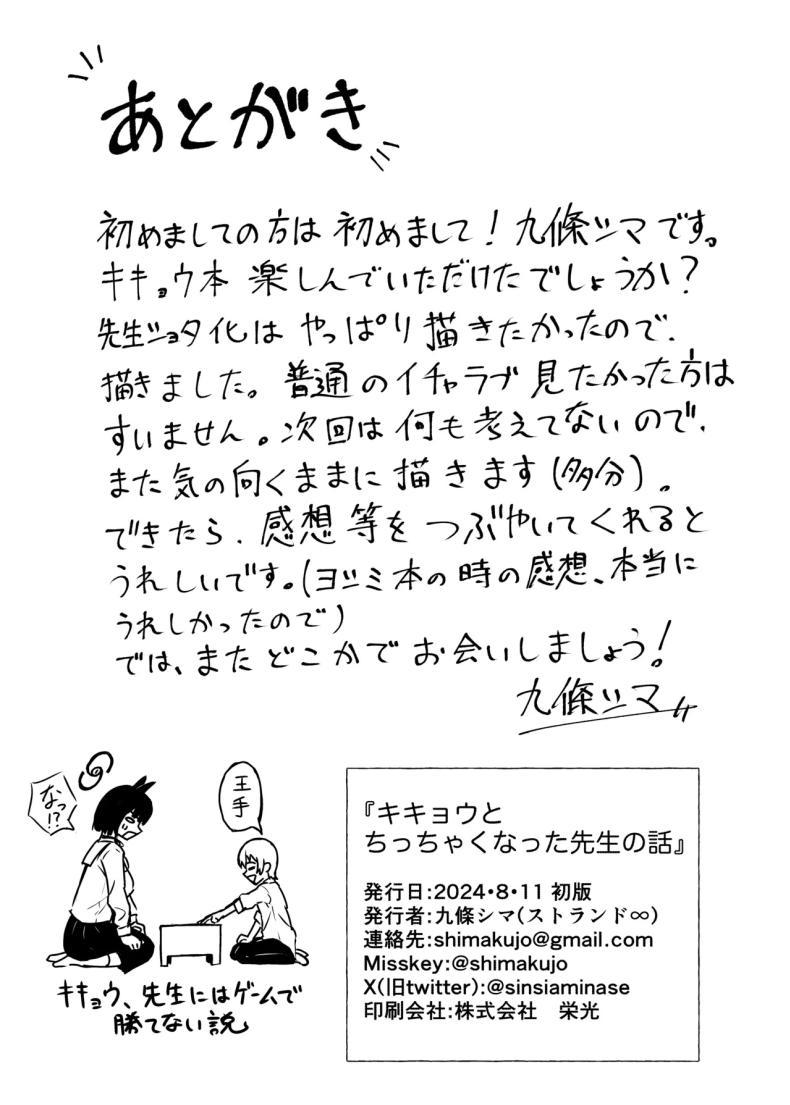 あとがき
初めましての方は 初めまして！九條シマです。
キキョウ本 楽しんでいただけたでしょうか？
先生ショタ化は やっぱり描きたかったので、
描きました。普通のイチャラブ 見たかった方は
すいません。次回は 何も考えてないので、
また気の向くままに 描きます(多分)。
できたら、感想 等を つぶやいてくれると
うれしいです。(ヨシミ本の時の感想、本当に
うれしかったので)
では、またどこかで お会いしましょう！
九條シマ
なっ!?
王手
キキョウ、先生にはゲームで
勝てない説
『キキョウと
ちっちゃくなった先生の話』
発行日:2024・8・11 初版
発行者:九條シマ(ストランド∞)
連絡先:shimakujo@gmail.com
Misskey:@shimakujo
X(旧twitter):@sinsiaminase
印刷会社:株式会社　栄光